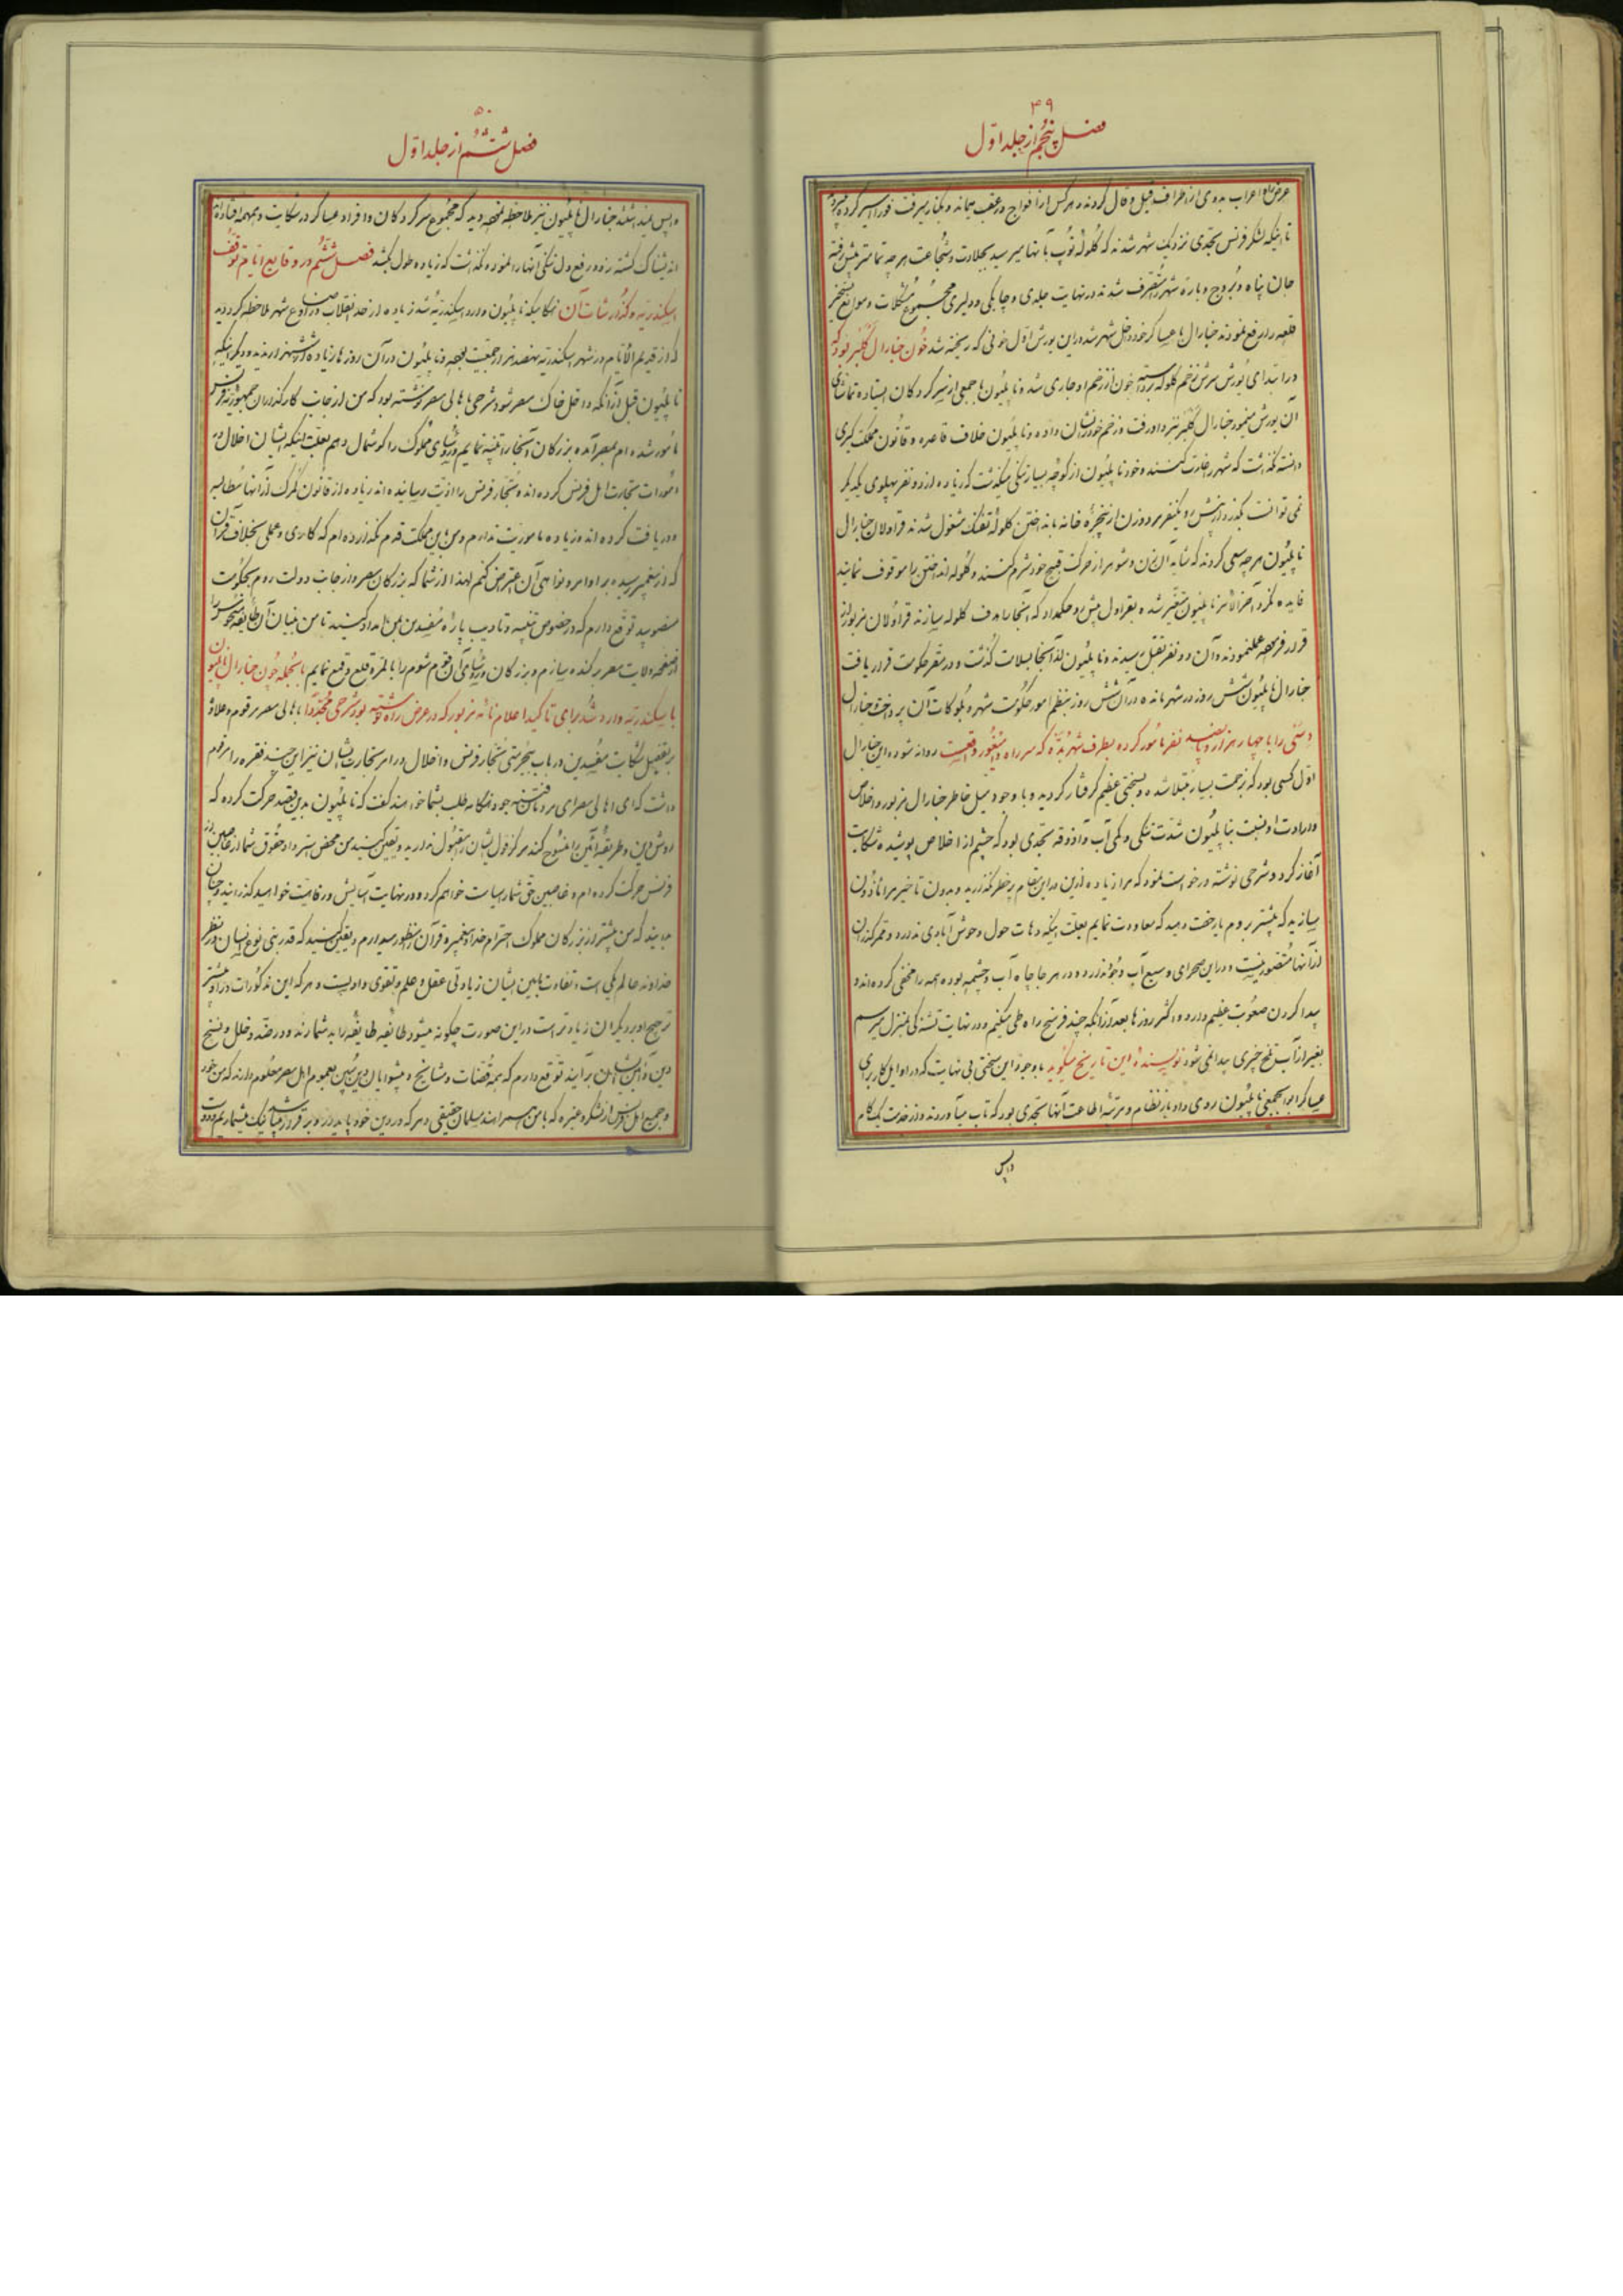 ۴۹
فصل پنجم از جلد اول
عرض راه اعراب بدوی از اطراف قیل و قال کردند و هر کس از افواج در عقب میماند و بکنار میرفت فوراً اسیر کرده میبردند
تا اینکه لشکر فرنس بحدی نزدیک شهر شدند که گلوله توپ بآنها میرسید بجلادت و شجاعت هر چه تمامتر پیش رفته
جان پناه و بروج و باره شهر را متصرف شدند و در نهایت جلدی و چابکی و دلیری مجموع مشکلات و موانع تسخیر
قلعه را رفع نمودند جنارال با عساکر خود داخل شهر شد در این یورش اول خونی که ریخته شد خون جنارال کلبر بود که
در ابتدای یورش سرش زخم گلوله برداشته خون از زخم او جاری شد و ناپلیون با جمعی از سرکردگان ایستاده تماشای
آن یورش مینمود جنارال کلبر نزد او رفت و زخم خود را نشان داده و ناپلیون خلاف قاعده و قانون مملکت گیری
دانسته نگذاشت که شهر را غارت کنند و خود ناپلیون از کوچه بسیار تنگی میگذشت که زیاده از دو نفر پهلوی یکدیگر
نمی توانست بگذرد از پیش رو یکنفر مرد و زن از پنجره خانه بانداختن گلوله تفنگ مشغول شدند قراولان جنارال
ناپلیون هر چه سعی کردند که شاید آن زن و شوهر از حرکت قبیح خود شرم کنند و گلوله انداختن را موقوف نمایند
فایده نکرد آخر الامر ناپلیون متغیر شده بقراول پیش رو حکم داد که آنجا را هدف گلوله سازند قراولان مزبور از
قرار فرموده عمل نمودند و آن دو نفر بقتل رسیدند و ناپلیون از آنجا بسلامت گذشت و در مقر حکومت قرار یافت
جنارال ناپلیون شش روز در شهر مانده در آن شش روز بنظم امور حکومت شهر و بلوکات آن پرداخت و جنارال
دسّی را با چهار هزار و پانصد نفر مأمور کرده بطرف شهر بدّه که سر راه دمنهور واقعست روانه شود و این جنارال
اول کسی بود که بزحمت بسیار مبتلا شده و بسختی عظیم گرفتار گردید و با وجود میل خاطر جنارال مزبور و اخلاص
و ارادت او نسبت بناپلیون شدت تشنگی و کمی آب و آذوقه بحدی بود که چشم از اخلاص پوشیده شکایت
آغاز کرد و شرحی نوشته درخواست نمود که مرا زیاده از این در این مقام پرخطر نگذارید و بدون تأخیر مرا مأذون
سازید که پیشتر بروم یا رخصت دهید که معاودت نمایم بعلت اینکه دهات حول و حوش آبادی ندارد و ممر گذران
از آنها متصور نیست و در این صحرای وسیع آب وجود ندارد و در هر جا چاه آب و چشمه بوده همه را مخفی کرده اند و
پیدا کردن صعوبت عظیم دارد و اکثر روزها بعد از آنکه چند فرسخ راه طی میکنیم و در نهایت تشنگی بمنزل میرسیم
بغیر از آب تلخ چیزی پیدا نمی شود نویسنده این تاریخ میگوید با وجود این سختی بی نهایت که در اوایل کار برای
عساکر ابوابجمعی ناپلیون روی داد باز نظام و مرتبه اطاعت آنها بحدی بود که تاب میآوردند و از خدمت یک گام
واپس
۵۰
فصل ششم از جلد اول
واپس نمینشستند جنارال ناپلیون نیز ملاحظه نمود دید که مجموع سرکردگان و افراد عساکر در شکایت و همهمه افتاده
اندیشناک گشته زود رفع دل تنگی آنها را نمود و نگذاشت که زیاده طول بکشد فصل ششم در وقایع ایام توقف
اسکندریه و گذارشات آن هنگامیکه ناپلیون وارد اسکندریه شد زیاده از حد انقلاب در اوضاع شهر ملاحظه گردید
که از قدیم الایام در شهر اسکندریه سیصد هزار جمعیت بوده و ناپلیون در آن روزها زیاده از شش هزار ندید و دیگر اینکه
ناپلیون قبل از آنکه داخل خاک مصر شود شرحی باهالی مصر نوشته بود که من از جانب کارگذاران جمهوریه فرنس
مأمور شده ام بمصر آمده بزرگان آنجا را تنبیه نمایم و رؤسای مملوک را گوشمال دهم بعلت اینکه ایشان اخلال در
امورات تجارت اهل فرنس کرده اند و تجار فرنس را اذیت رسانیده اند زیاده از قانون گمرک از آنها مطالبه
و دریافت کرده اند و زیاده مأموریت ندارم و من باین مملکت قدم نگذارده ام که کاری و عملی بخلاف قرآن
که از پیغمبر رسیده بر اوامر و نواهی آن اعتراض کنم لهذا از شما که بزرگان مصر و از جانب دولت روم بحکومت
منصوبید توقع دارم که در خصوص تنبیه و تأدیب پاره مفسدین بمن امداد کنید تا من بنیان آن طایفه منحوس را
از صفحه ولایت مصر برکنده سازم و بزرگان و رؤسای آن قوم شوم را بالمره قلع و قمع نمایم بالجمله چون جنارال ناپلیون
باسکندریه وارد شد برای تأکید اعلام نامه مزبور که در عرض راه نوشته بود شرحی مجدداً باهالی مصر مرقوم و علاوه
بر تفصیل شکایت مفسدین در باب بیحرمتی تجار فرنس و اخلال در امر تجارت ایشان نیز این چند فقره را مرقوم
داشت که ای اهالی مصر ای مردمان فتنه جو و هنگامه طلب بشما خواهند گفت که ناپلیون بدین قصد حرکت کرده که
روش دین و طریقه آئین را منسوخ کند هرگز قول ایشان را مقبول ندارید و یقین کنید من محض استرداد حقوق شما از غاصبین از
فرنس حرکت کرده ام و غاصبین حق شما را سیاست خواهم کرد و در نهایت آسایش و رفاهیت خواهید گذرانید و چنان
بدانید که من بیشتر از بزرگان مملوک احترام خدا و پیغمبر و قرآن را منظور میدارم و یقین کنید که قدر بنی نوع انسان در نظر
خداوند عالم یکی است و تفاوت مابین ایشان زیادتی عقل و علم و تقوی و ادبست و هر که این مذکورات در او بیشتر
ترجیح او بر دیگران زیادتر است در این صورت چگونه میشود طایفه طایفه را بد شمارند و در صدد خلل و فسخ
دین و آئین ایشان برآیند توقع دارم که همه قضات و مشایخ و پیشوایان دین مبین بعموم اهل مصر معلوم دارند که من خود
و جمیع اهل فرنس از لشکر و غیره که با من همراه اند مسلمان حقیقی و هر که در دین خود پایدار و برقرار باشد نیک میشماریم و دوست